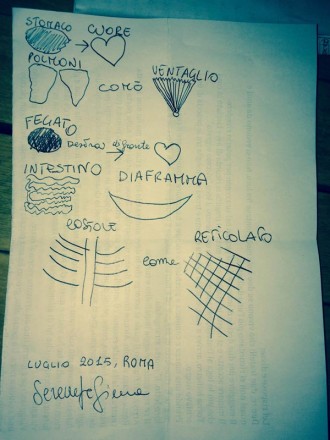 STOMACO CUORE
POLMONI
COMÒ VENTAGLIO
FEGATO
DESTRA di fronte
INTESTINO
DIAFRAMMA
COSTOLE
RETICOLATO
COME
LUGLIO 2015, ROMA